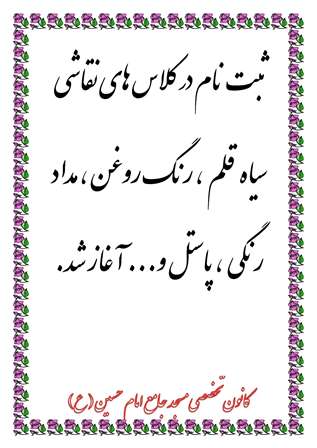 ثبت نام در کلاس های نقاشی
سیاه قلم ، رنگ روغن ، مداد
رنگی ، پاستل و... آغاز شد.
کانون تخصصی مسجد جامع امام حسین (ع)